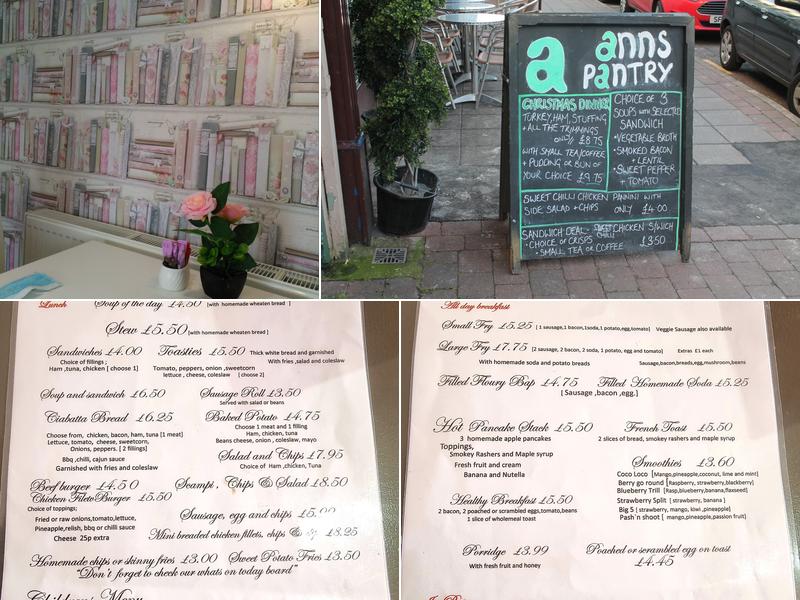 a anns
PANTRY
CHRISTMAS DINNER
TURKEY, HAM, STUFFING
+ ALL THE TRIMMINGS
ONLY £8.75
WITH SMALL TEA/COFFEE
+ PUDDING OR BUN OF
YOUR CHOICE £9.75
CHOICE OF 3
SOUPS WITH SELECTED
SANDWICH
• VEGETABLE BROTH
• SMOKED BACON
+ LENTIL
• SWEET PEPPER
+ TOMATO
SWEET CHILLI CHICKEN PANNINI WITH
SIDE SALAD + CHIPS ONLY £4.00
SANDWICH DEAL - SWEET CHILLI CHICKEN S/WICH
• CHOICE OF CRISPS
• SMALL TEA OR COFFEE £3.50
Lunch
Soup of the day £4.50 [with homemade wheaten bread]
Stew £5.50 [with homemade wheaten bread ]
Sandwiches £4.00 Toasties £5.50 Thick white bread and garnished
Choice of fillings ; With fries ,salad and coleslaw
Ham ,tuna, chicken [ choose 1] Tomato, peppers, onion ,sweetcorn
lettuce , cheese, coleslaw [ choose 2]
Soup and sandwich £6.50 Sausage Roll £3.50
Served with salad or beans
Ciabatta Bread £6.25 Baked Potato £4.75
Choose 1 meat and 1 filling
Choose from, chicken, bacon, ham, tuna [1 meat] Ham, chicken, tuna
Lettuce, tomato, cheese, sweetcorn, Beans cheese, onion , coleslaw, mayo
Onions, peppers. [ 2 fillings]
Bbq ,chilli, cajun sauce
Salad and Chips £7.95
Garnished with fries and coleslaw Choice of Ham ,chicken, Tuna
Beef burger £4.50 Scampi, Chips & Salad £8.50
Chicken Filet Burger £5.50
Choice of toppings;
Sausage, egg and chips
Fried or raw onions,tomato,lettuce,
Pineapple,relish, bbq or chilli sauce
Mini breaded chicken fillets, chips & £8.25
Cheese 25p extra
Homemade chips or skinny fries £3.00 Sweet Potato Fries £3.50
"Don't forget to check our whats on today board"
Children's Menu
All day breakfast
Small Fry £5.25 [ 1 sausage,1 bacon,1soda,1 potato,egg,tomato] Veggie Sausage also available
Large Fry £7.75 [2 sausage, 2 bacon, 2 soda, 1 potato, egg and tomato] Extras £1 each
With homemade soda and potato breads Sausage,bacon,breads,egg,mushroom,beans
Filled Floury Bap £4.75 Filled Homemade Soda £5.25
[ Sausage ,bacon ,egg.]
Hot Pancake Stack £5.50 French Toast £5.50
3 homemade apple pancakes 2 slices of bread, smokey rashers and maple syrup
Toppings,
Smokey Rashers and Maple syrup
Fresh fruit and cream
Banana and Nutella
Smoothies £3.60
Coco Loco [Mango,pineapple,coconut, lime and mint]
Berry go round [Raspberry, strawberry,blackberry]
Blueberry Trill [Rasp,blueberry,banana,flaxseed]
Strawberry Split [ strawberry, banana ]
Big 5 [ strawberry, mango, kiwi ,pineapple]
Pash'n shoot [ mango,pineapple,passion fruit]
Healthy Breakfast £5.50
2 bacon, 2 poached or scrambled eggs,tomato,beans
1 slice of wholemeal toast
Porridge £3.99 Poached or scrambled egg on toast
With fresh fruit and honey £4.45